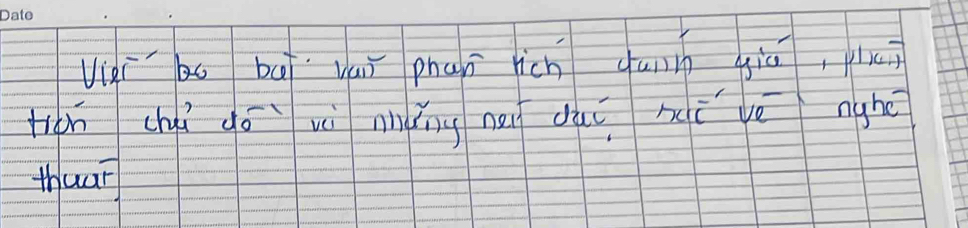 Date
Viết bố bài văn phân tích đánh giá, phân
tích chủ đề và những nét đặc sắc về nghệ
thuật